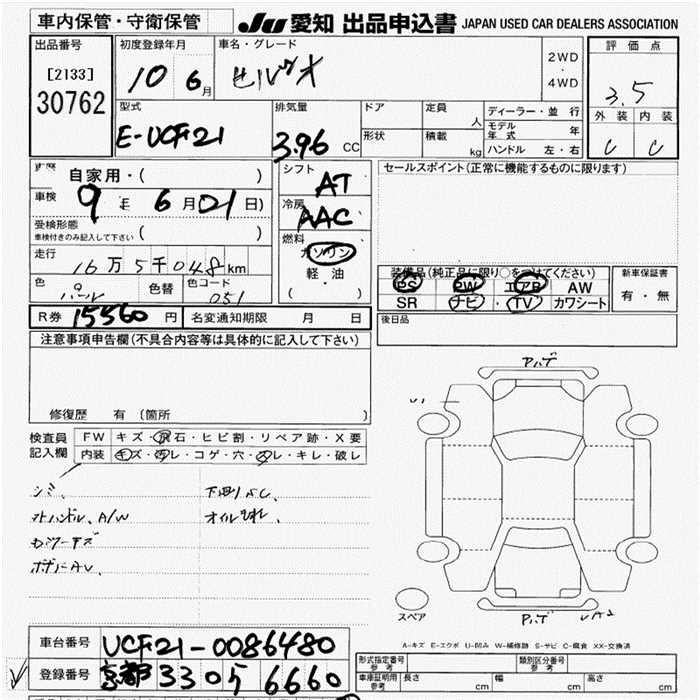 車内保管・守衛保管 JU 愛知 出品申込書 JAPAN USED CAR DEALERS ASSOCIATION
出品番号 初度登録年月 車名・グレード 評価点
[2133] 10 6月 セルシオ 2WD・4WD 3.5
30762
型式 排気量 ドア 定員 人 ディーラー・並行 外装 内装
E-UCF21 3.96 CC 形状 積載 kg モデル年式 年 C C
ハンドル 左・右
自家用・( ) シフト AT セールスポイント(正常に機能するものに限ります)
車検 9年 6月 01日) 冷房 AAC
受検形態 ( )
車検付きのみ記入して下さい
燃料 ガソリン
走行 16万5千048km 軽油
( )
装備品(純正品に限り○をつけてください) 新車保証書
色 パール 色替 色コード 051
PS PW エアB AW 有・無
SR ナビ・TV カワシート
R券 15560円 名変通知期限 月 日 後日品
注意事項申告欄(不具合内容等は具体的に記入して下さい)
修復歴 有(箇所 )
検査員記入欄 FW キズ・飛石・ヒビ割・リペア跡・X要
内装 キズ・汚レ・コゲ・穴・スレ・キレ・破レ
シミ、 下回りサビ、
ハンドル、A/W オイルモレ、
キズ
ボディAU、
スペア
A-キズ E-エクボ U-凹み W-補修跡 S-サビ C-腐食 XX-交換済
車台番号 UCF21-0086480
登録番号 京都 330 5 6660
形式指定番号 参考 類別区分番号 参考
車庫証明用 参考 長さ cm 幅 cm 高さ cm